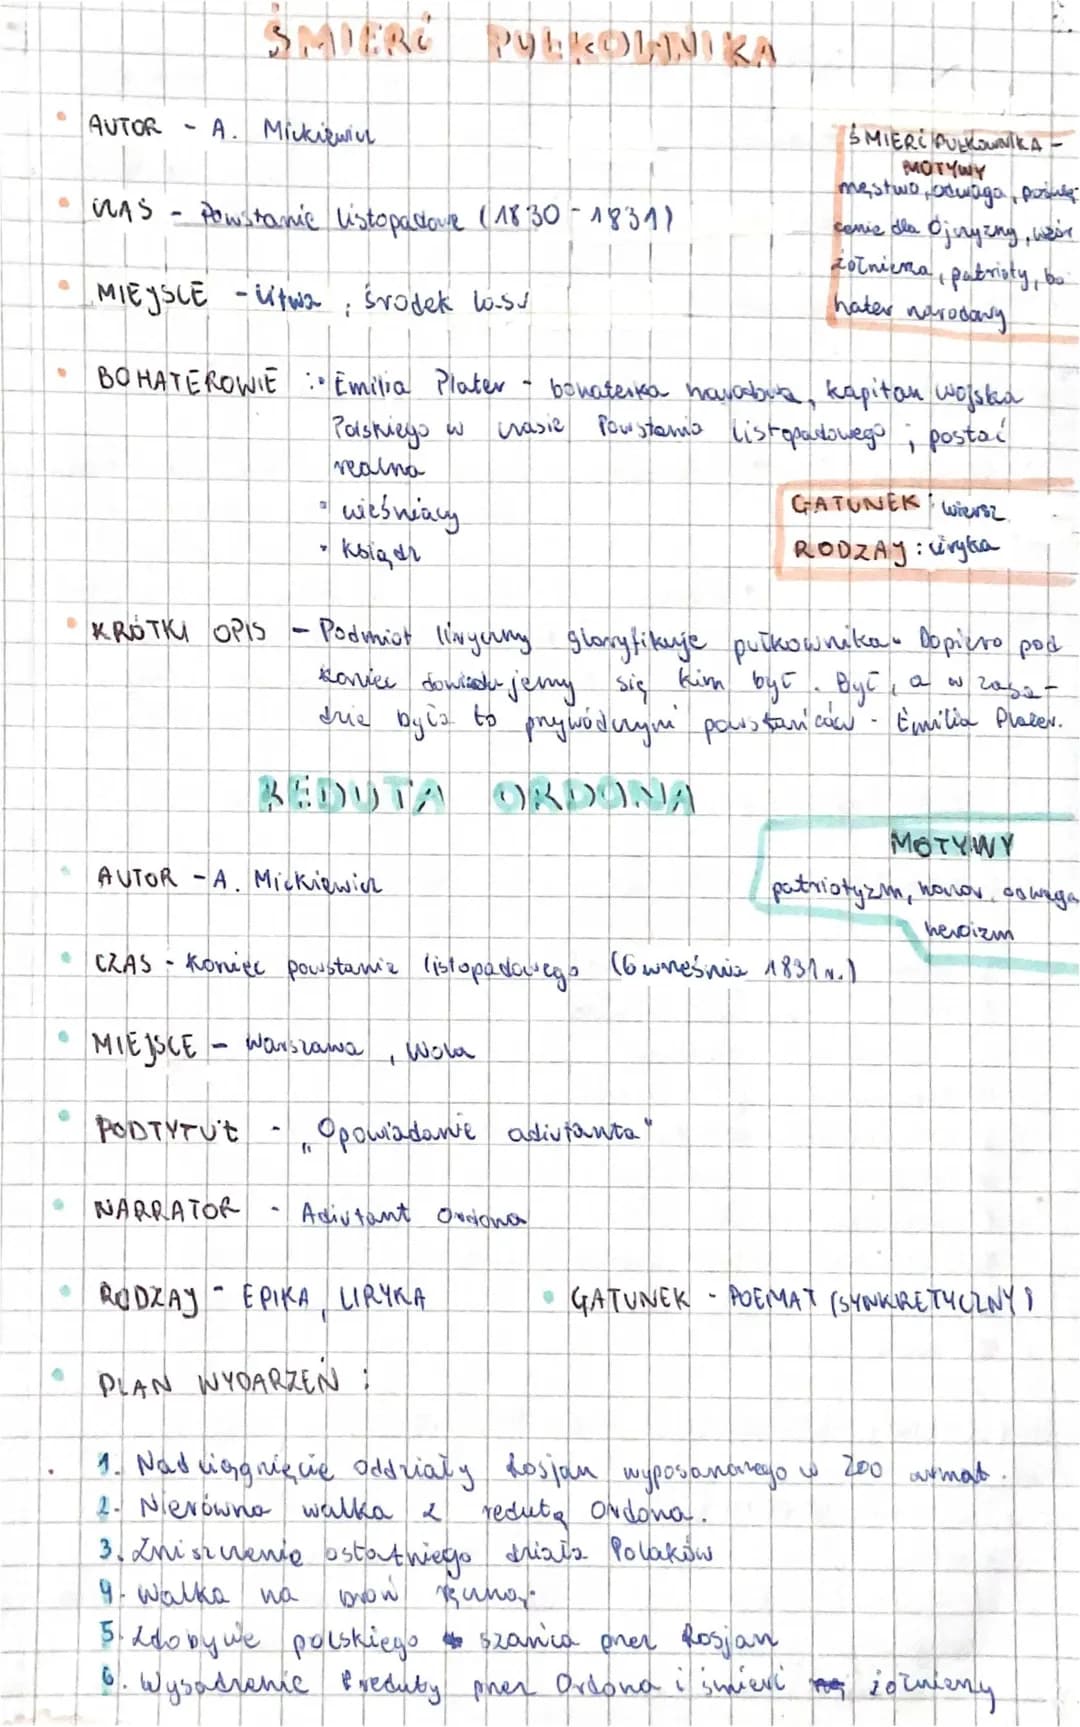 ŚMIERĆ PUŁKOWNIKA
AUTOR - A. Mickiewicz
ŚMIERĆ PUŁKOWNIKA -
MOTYWY
męstwo, odwaga, poświę-
cenie dla Ojczyzny, wzór
żołnierza, patrioty, bo
hater narodowy
CZAS - Powstanie listopadowe (1830-1831)
MIEJSCE - Litwa, środek lasu
BOHATEROWIE : • Emilia Plater - bohaterka narodowa, kapitan wojska
Polskiego w czasie Powstania Listopadowego ; postać
realna
• wieśniacy
• Ksiądz
GATUNEK : wiersz
RODZAJ : liryka
• KRÓTKI OPIS - Podmiot liryczny gloryfikuje pułkownika. Dopiero pod
koniec dowiadujemy się kim był. Był, a w zasa-
dzie była to przywódczyni powstańców - Emilia Plater.
REDUTA ORDONA
MOTYWY
patriotyzm, honor, odwaga
heroizm
AUTOR - A. Mickiewicz
CZAS - Koniec powstania listopadowego (6 września 1831 r.)
MIEJSCE - Warszawa, Wola
PODTYTUŁ - "Opowiadanie adiutanta"
NARRATOR - Adiutant Ordona
RODZAJ - EPIKA, LIRYKA
GATUNEK - POEMAT (SYNKRETYCZNY)
PLAN WYDARZEŃ :
1. Nadciągnięcie oddziały Rosjan wyposażonego w 200 armat.
2. Nierówna walka z redutą Ordona.
3. Zniszczenie ostatniego działa Polaków
4. Walka na broń ręczną.
5. Zdobycie polskiego szańca przez Rosjan
6. Wysadzenie reduty przez Ordona i śmierć żołnierzy